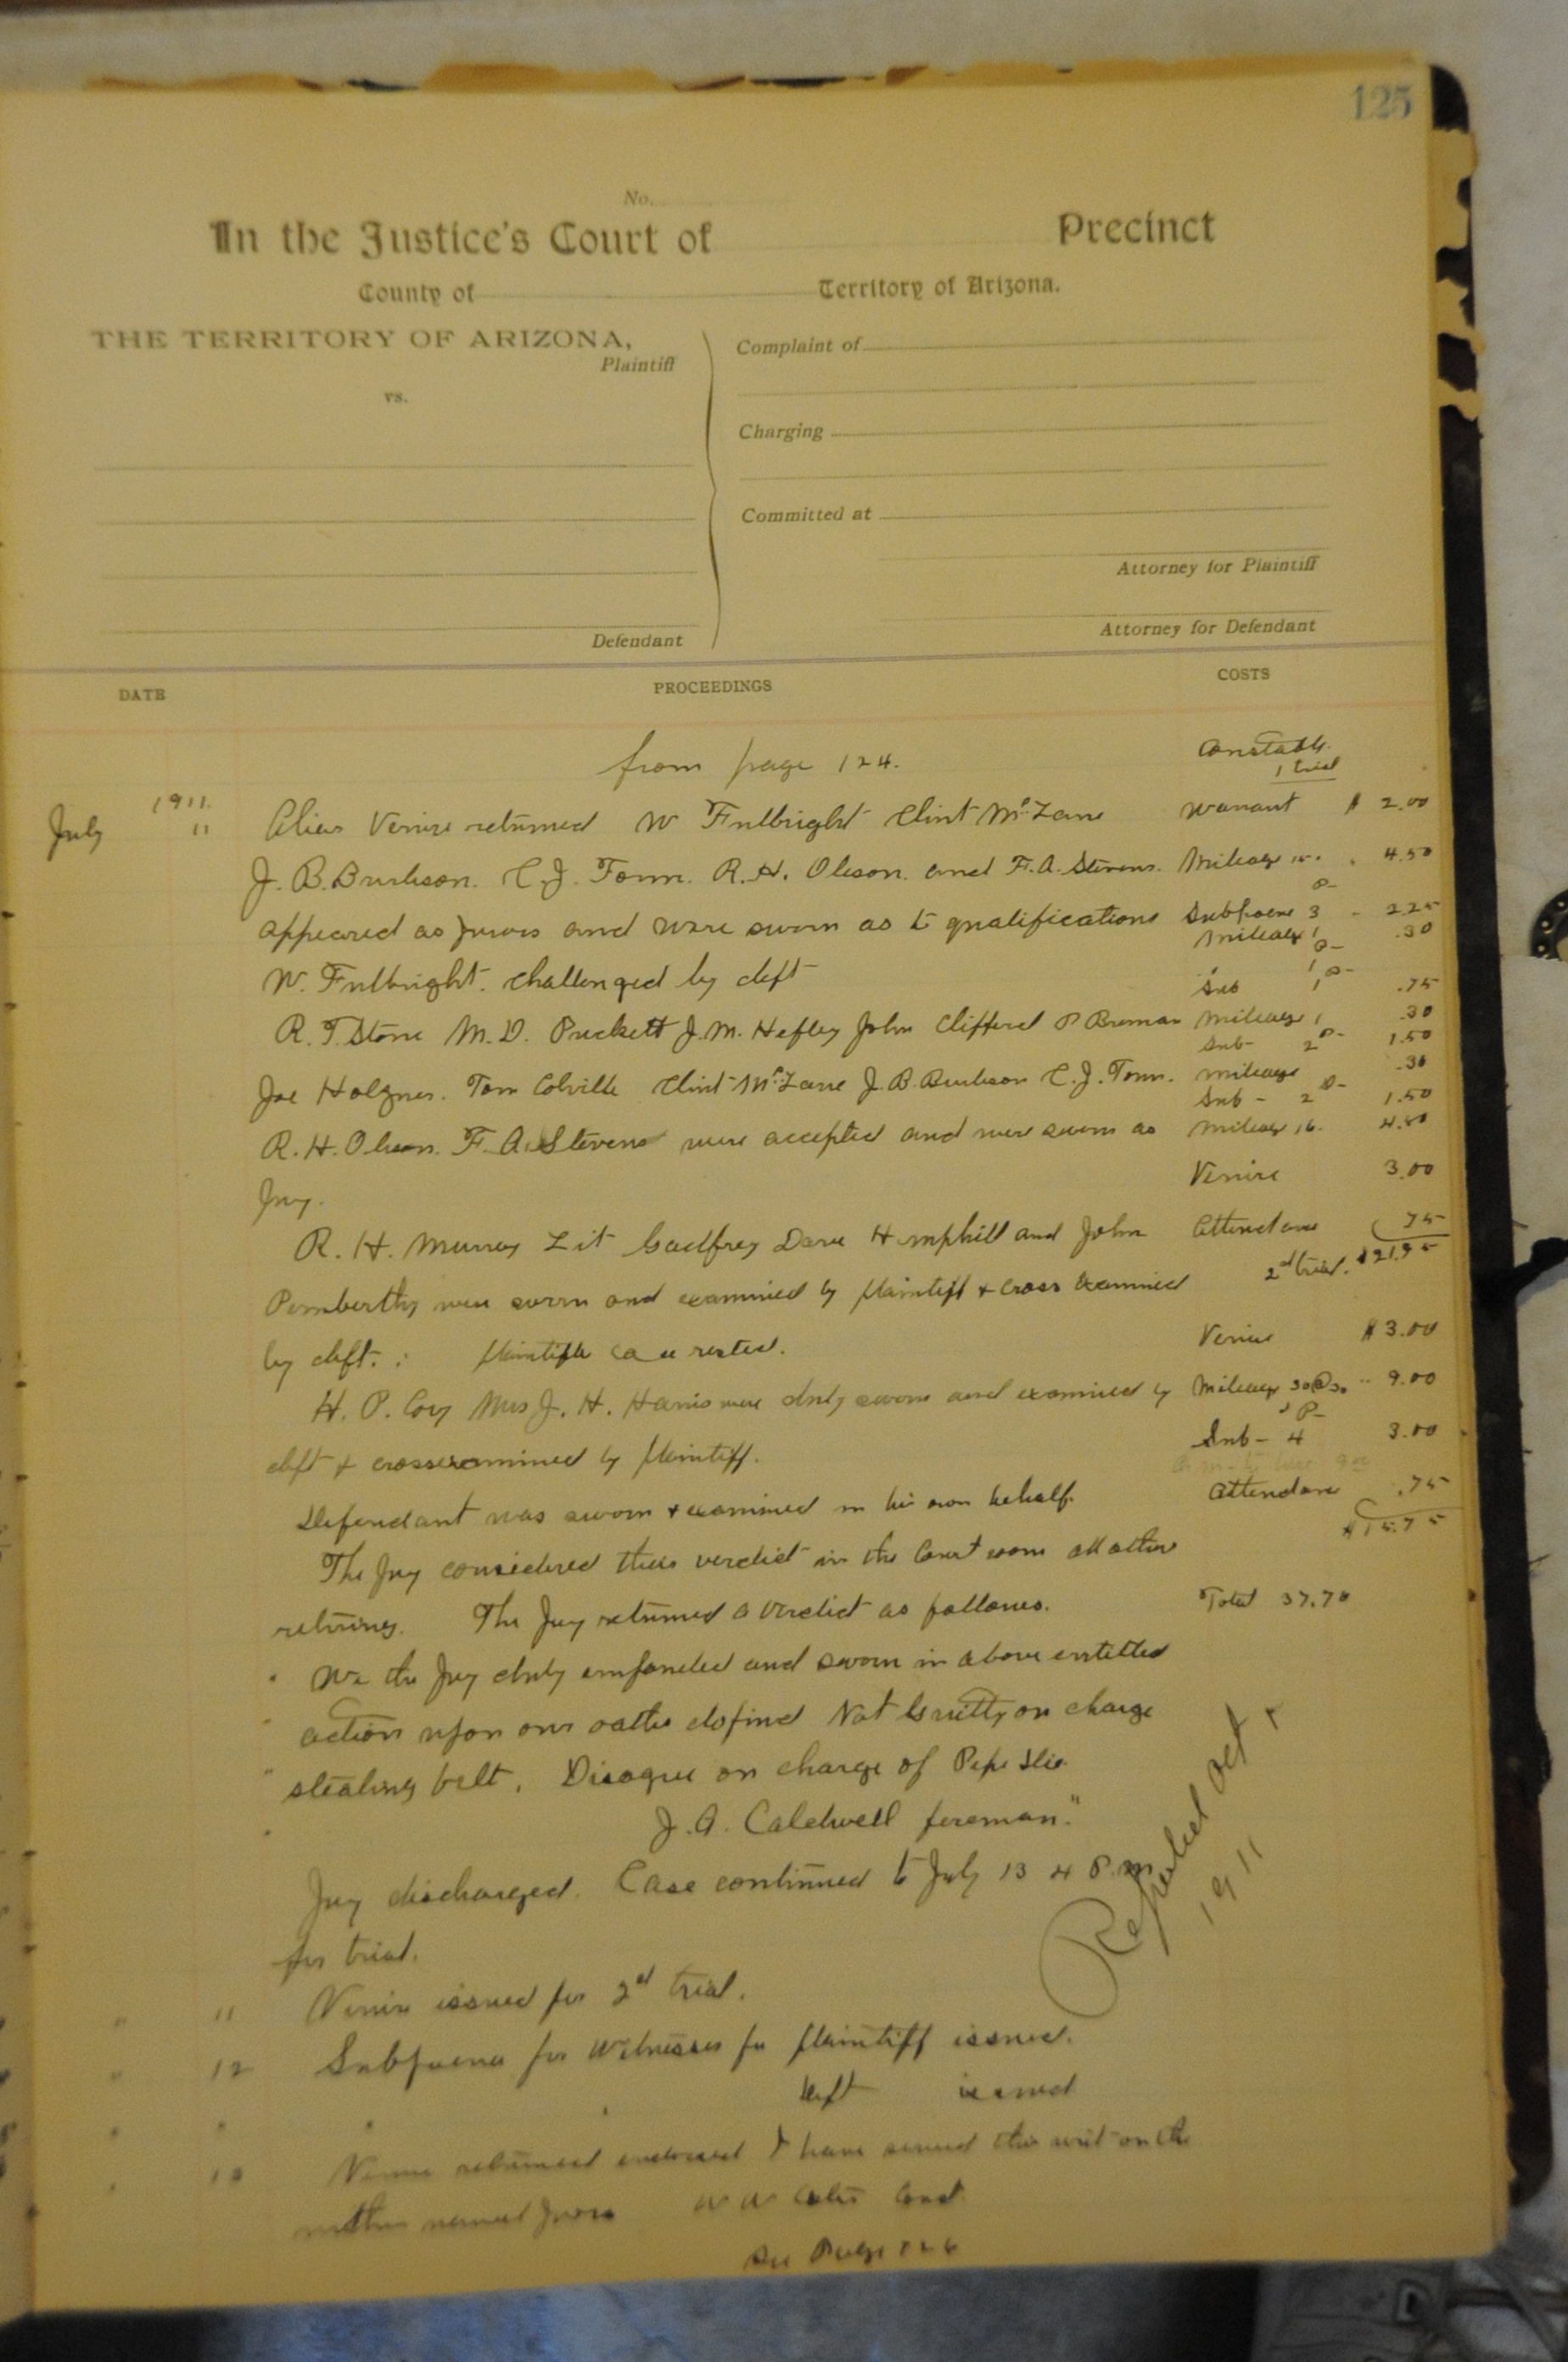 125
No.
In the Justice's Court of Precinct
County of Territory of Arizona.
THE TERRITORY OF ARIZONA,
Plaintiff
vs.
Defendant
Complaint of
Charging
Committed at
Attorney for Plaintiff
Attorney for Defendant
DATE PROCEEDINGS COSTS
from page 124. Constable
1 trial
1911.
July 11 Alias Venire returned W Fullbright Clint McZane Warrant $ 2.00
J. B. Burleson. C. J. Tonn. R. H. Oleson. and F. A. Stevens. Mileage 15. 4.50
appeared as jurors and were sworn as to qualifications Subpoena 3 2.25
Mileage 1 .30
W. Fullbright. challenged by deft Sub 1 .75
R. T. Stone M. D. Puckett J. M. Hefley John Clifford P Breman Mileage 1 .30
Sub- 2 1.50
Joe Holzner. Tom Colville Clint McZane J. B. Burleson C. J. Tonn. Mileage .30
Sub - 2 1.50
R. H. Oleson. F. A. Stevens were accepted and were sworn as Mileage 16. 4.80
Jury. Venire 3.00
R. H. Murray Lit Gadfrey Dave Hemphill and John Attendance 75
2nd trial. $21.95
Pemberthy were sworn and examined by plaintiff & cross examined
by deft. : plaintiffs case rested. Venire $ 3.00
H. P. Cory Mrs J. H. Harris were duly sworn and examined by Mileage 30@30 9.00
deft & crossexamined by plaintiff. Sub- 4 3.00
Defendant was sworn & examined in his own behalf. Attendance .75
$15.75
The Jury considered their verdict in the Court room all others
retiring. The Jury returned a verdict as follows. Total 37.70
" We the Jury duly empaneled and sworn in above entitled
" action upon our oaths do find Not Guilty on charge
" stealing belt. Disagree on charge of Pipe
" J. A. Caldwell foreman."
Jury discharged. Case continued to July 13 4 P.m
for trial.
Reported Oct
1911
" 11 Venire issued for 2nd trial.
" 12 Subpoena for Witnesses for plaintiff issued.
" " " " deft issued
" 13 Venire returned endorsed I have served this writ on the
within named Jurors W W Const.
See Page 126